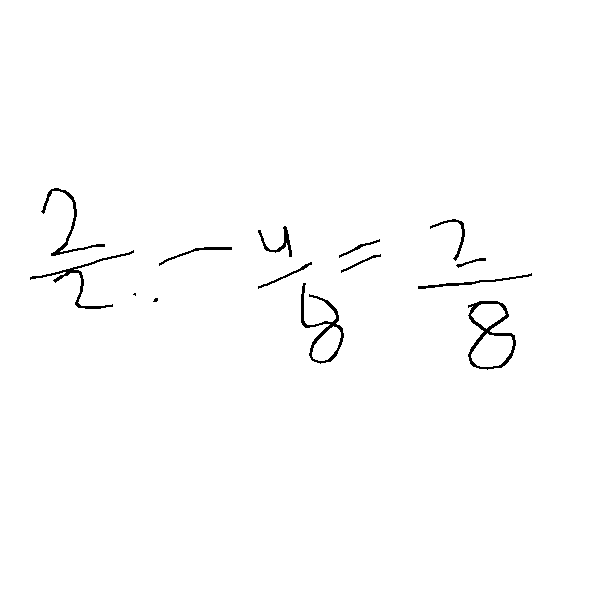 2/2 - 4/8 = 2/8